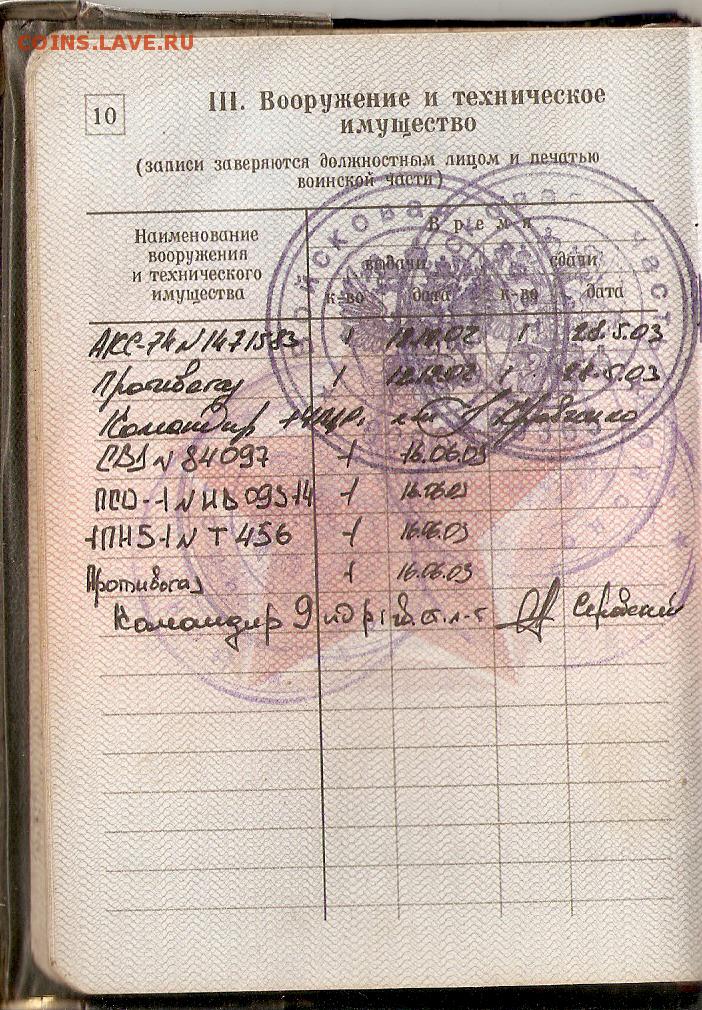 COINS.LAVE.RU
10
III. Вооружение и техническое
имущество
(записи заверяются должностным лицом и печатью
воинской части)
Наименование
вооружения
и технического
имущества
Время
выдачи сдачи
к-во дата к-во дата
АКС-74 N 1471583 1 1 28.5.03
Противогаз 1 1 28.5.03
Командир
СВД N 84097 1 16.06.03
1 16.06.03
1ПН51 N Т 456 1 16.06.03
Противогаз 1 16.06.03
Командир 9 ст. л-т